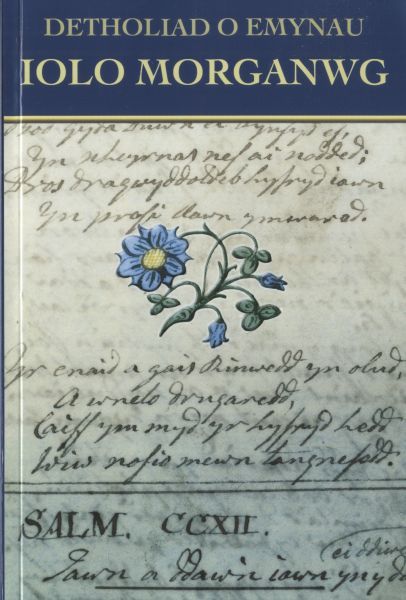 DETHOLIAD O EMYNAU
IOLO MORGANWG
Yn nheyrnas nef ai nodded;
Dros dragwyddoldeb hyfryd iawn
Yn profi dawn ymwared.
Yr enaid a gais Rinwedd yn olud,
A wnelo drugaredd,
Caiff ym myd yr hyfryd hedd
Wiw nofio mewn tangnefedd.
SALM. CCXII.
ei ddiw
Iawn o ddawn iawn yn